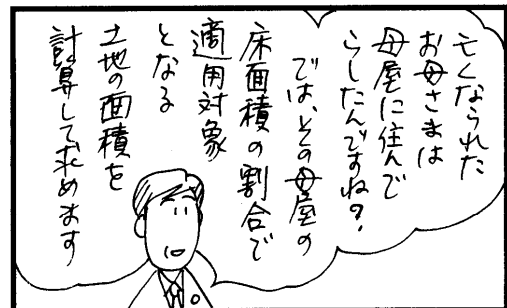 亡くなられた
お母さまは
母屋に住んで
らしたんですね？
では、その母屋の
床面積の割合で
適用対象
となる
土地の面積を
計算して求めます